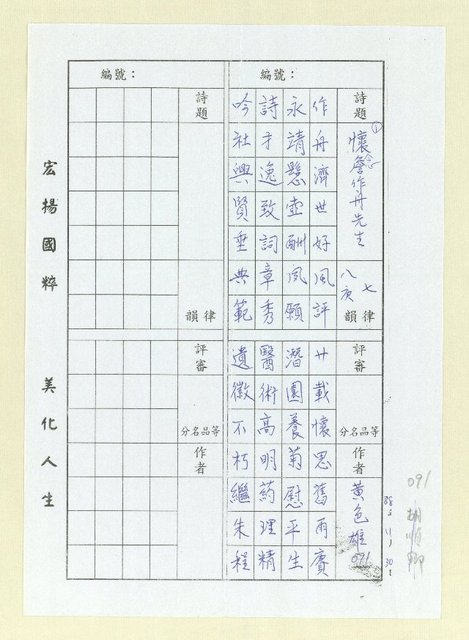 091 胡順卿
編號：
詩題
懷念詹作舟先生
七律
八庚韻
評審
分名品等
作者
黃色雄 091
作舟濟世好風評
廿載懷思舊雨賡
永靖懸壺酬夙願
潛園養菊慰平生
詩才逸致詞章秀
醫術高明葯理精
吟社興賢垂典範
遺徽不朽繼朱程
編號：
詩題
韻律
評審
分名品等
作者
宏揚國粹
美化人生